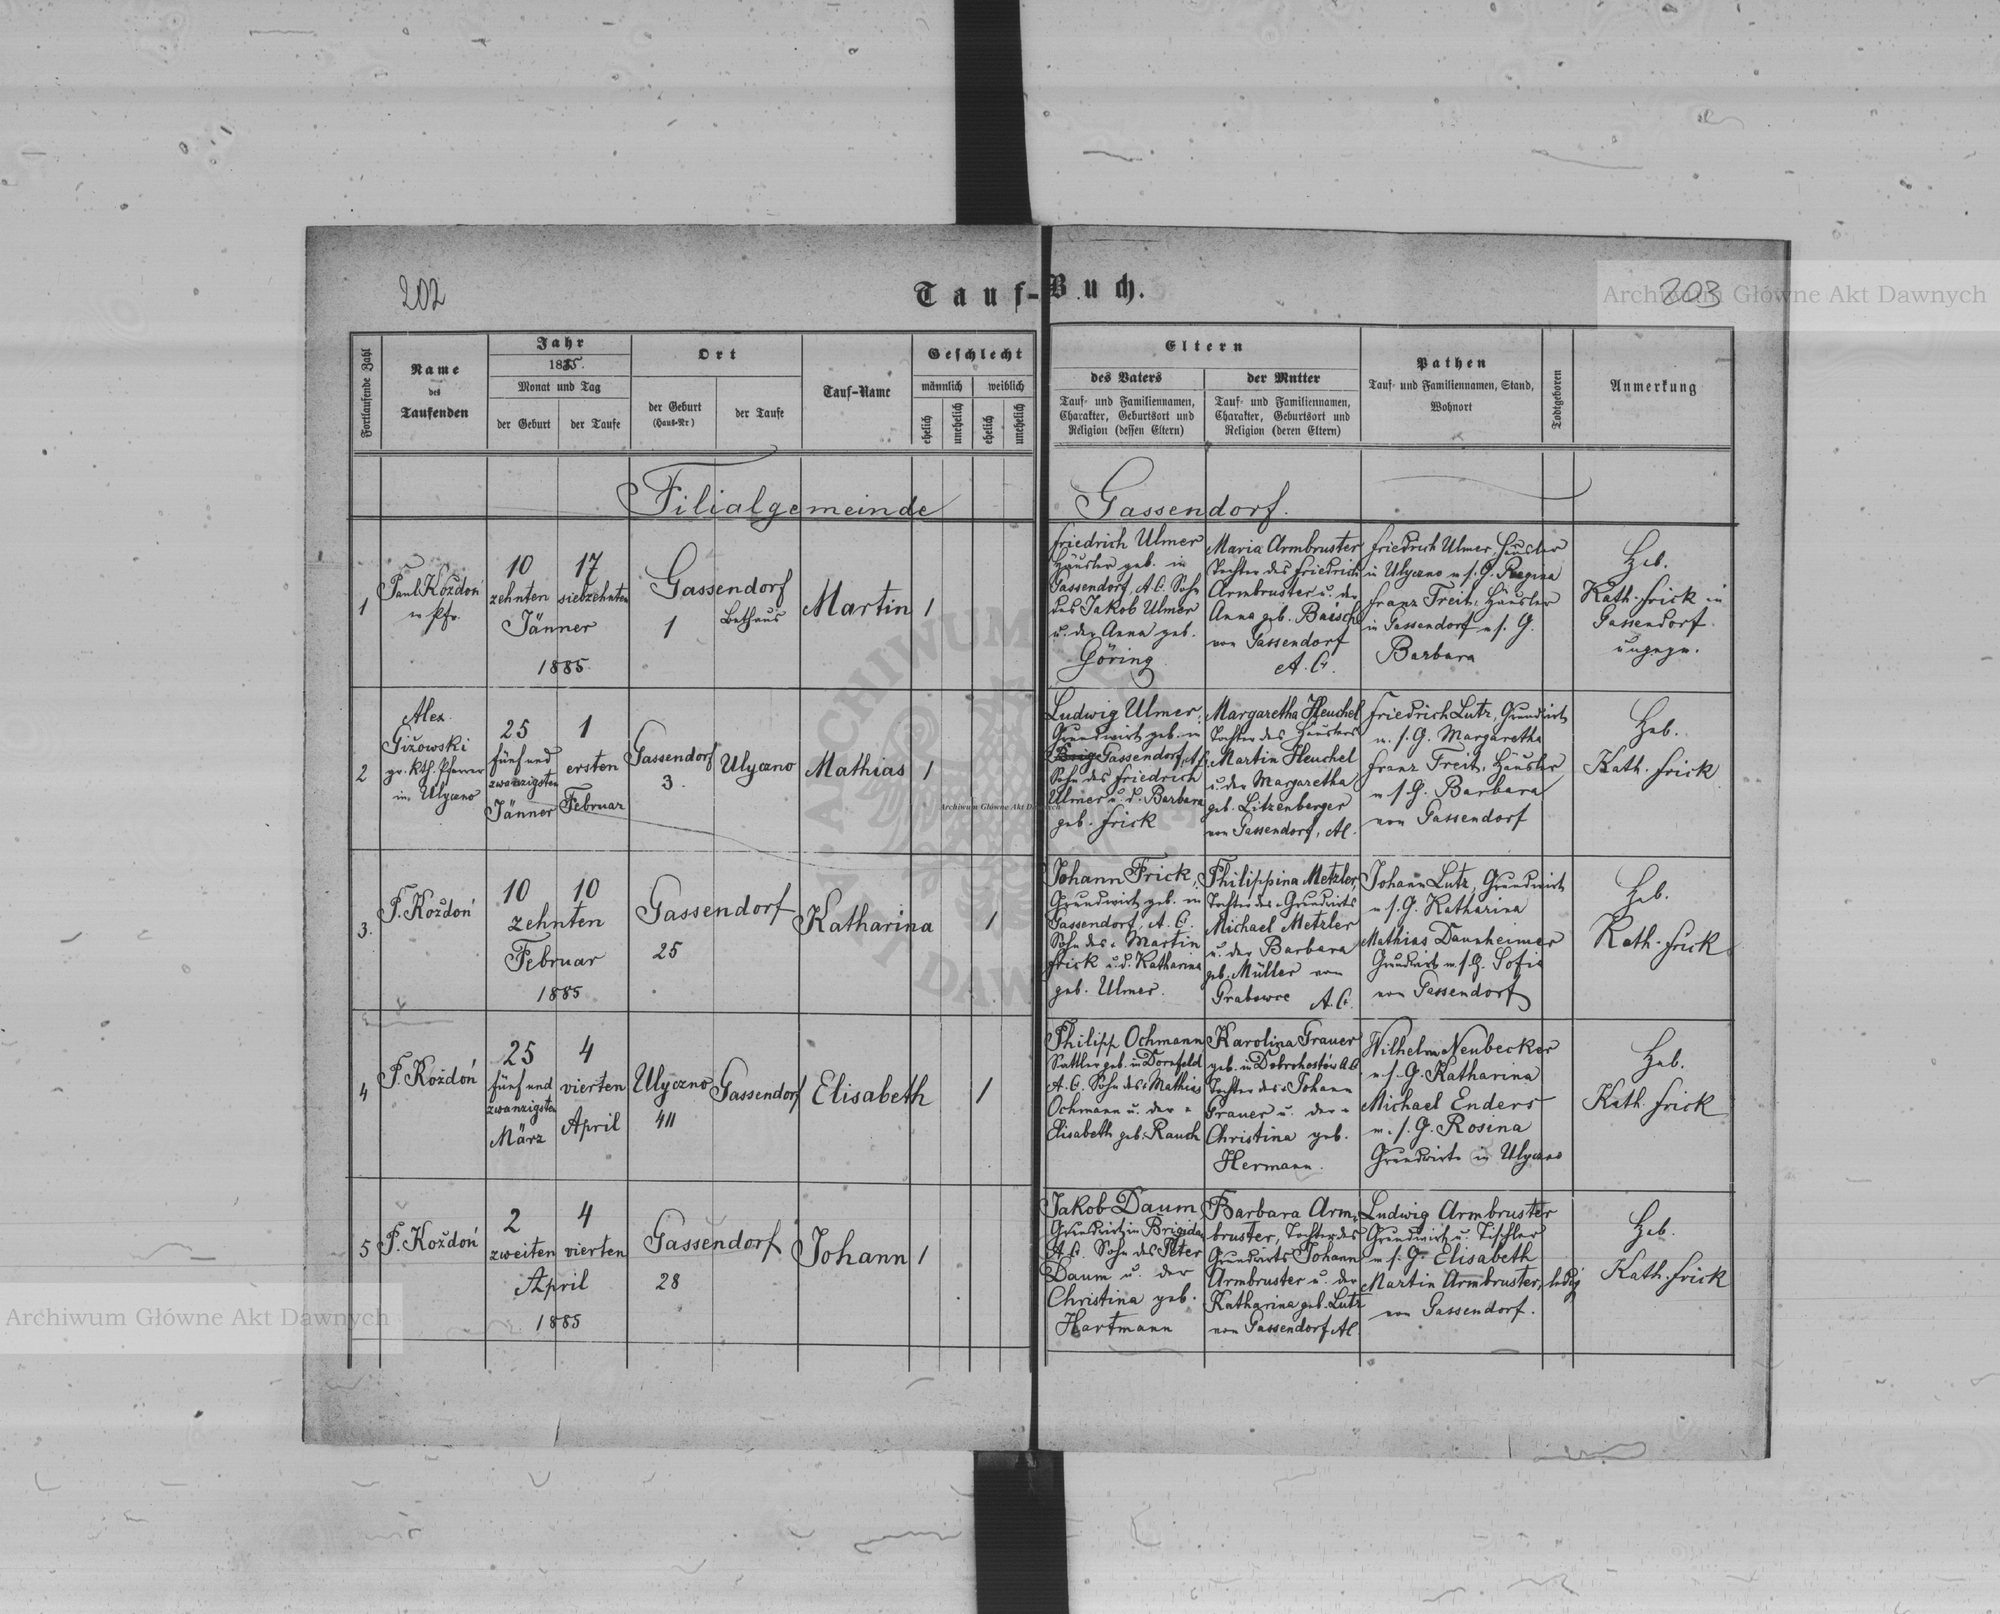 202
Tauf-Buch.
203
Archiwum Główne Akt Dawnych
Fortlaufende Zahl
Name
des
Taufenden
Jahr
1885.
Monat und Tag
der Geburt
der Taufe
Ort
der Geburt
(Haus-Nr)
der Taufe
Tauf-Name
Geschlecht
männlich
weiblich
ehelich
unehelich
ehelich
unehelich
Eltern
des Vaters
Tauf- und Familiennamen,
Charakter, Geburtsort und
Religion (dessen Eltern)
der Mutter
Tauf- und Familiennamen,
Charakter, Geburtsort und
Religion (deren Eltern)
Pathen
Tauf- und Familiennamen, Stand,
Wohnort
Todtgeboren
Anmerkung
Filialgemeinde Gassendorf.
1
Paul Kożdoń
Pfr.
10
zehnten
17
siebzehnten
Jänner
1885
Gassendorf
1
Bethaus
Martin
1
Friedrich Ulmer
Häusler geb. in
Gassendorf, A.C. Sohn
des Jakob Ulmer
u. der Anna geb.
Göring
Maria Armbruster
Tochter des Friedrich
Armbruster u. der
Anna geb. Baisch
von Gassendorf
A.C.
Friedrich Ulmer, Häusler
in Ulyczno m. s. G. Regina
Franz Treit, Häusler
in Gassendorf m s. G.
Barbara
Heb.
Kath. Frick in
Gassendorf.
2
Alex.
Giżowski
gr. kth. Pfarrer
in Ulyczno
25
fünf und
zwanzigsten
Jänner
1
ersten
Februar
Gassendorf
3.
Ulyczno
Mathias
1
Ludwig Ulmer,
Grundwirt geb. in
Brig Gassendorf, A.C.
Sohn des Friedrich
Ulmer u. d. Barbara
geb. Frick
Margaretha Heuchel
Tochter des Häuslers
Martin Heuchel
u. der Margaretha
geb. Litzenberger
von Gassendorf, AC.
Friedrich Lutz, Grundwirt
m. s. G. Margaretha
Franz Treit, Häusler
m s. G. Barbara
von Gassendorf
Heb.
Kath. Frick
3.
P. Kożdoń
10
10
zehnten
Februar
1885
Gassendorf
25
Katharina
1
Johann Frick,
Grundwirt geb. in
Gassendorf, A.C.
Sohn des Martin
Frick u.d. Katharina
geb. Ulmer.
Philippina Metzler,
Tochter des Grundwirts
Michael Metzler
u. der Barbara
geb. Müller von
Grabowce A.C.
Johann Lutz, Grundwirt
m s. G. Katharina
Mathias Dannheimer
Grundwirt m. s. G. Sofie
von Gassendorf
Heb.
Kath. Frick
4
P. Kożdoń
25
fünf und
zwanzigsten
März
4
vierten
April
Ulyczno
411
Gassendorf
Elisabeth
1
Philipp Ochmann
Sattler geb. in Dornfeld
A.C. Sohn des Mathias
Ochmann u. der
Elisabeth geb. Rauch
Karolina Grauer
geb. in Dobrohostów A.C.
Tochter des Johann
Grauer u. der
Christina geb.
Hermann.
Wilhelm Neubecker
m s. G. Katharina
Michael Enders
m. s. G. Rosina
Grundwirte in Ulyczno
Heb.
Kath. Frick
5
P. Kożdoń
2
zweiten
4
vierten
April
1885
Gassendorf
28
Johann
1
Jakob Daum
Grundwirt in Brigidau
A.C. Sohn des Peter
Daum u. der
Christina geb.
Hartmann
Barbara Arm-
bruster, Tochter des
Grundwirts Johann
Armbruster u. der
Katharina geb. Lutz
von Gassendorf AC
Ludwig Armbruster
Grundwirt u. Tischler
m s. G. Elisabeth
Martin Armbruster, ledig
von Gassendorf.
Heb.
Kath. Frick
Archiwum Główne Akt Dawnych
Archiwum Główne Akt Dawnych